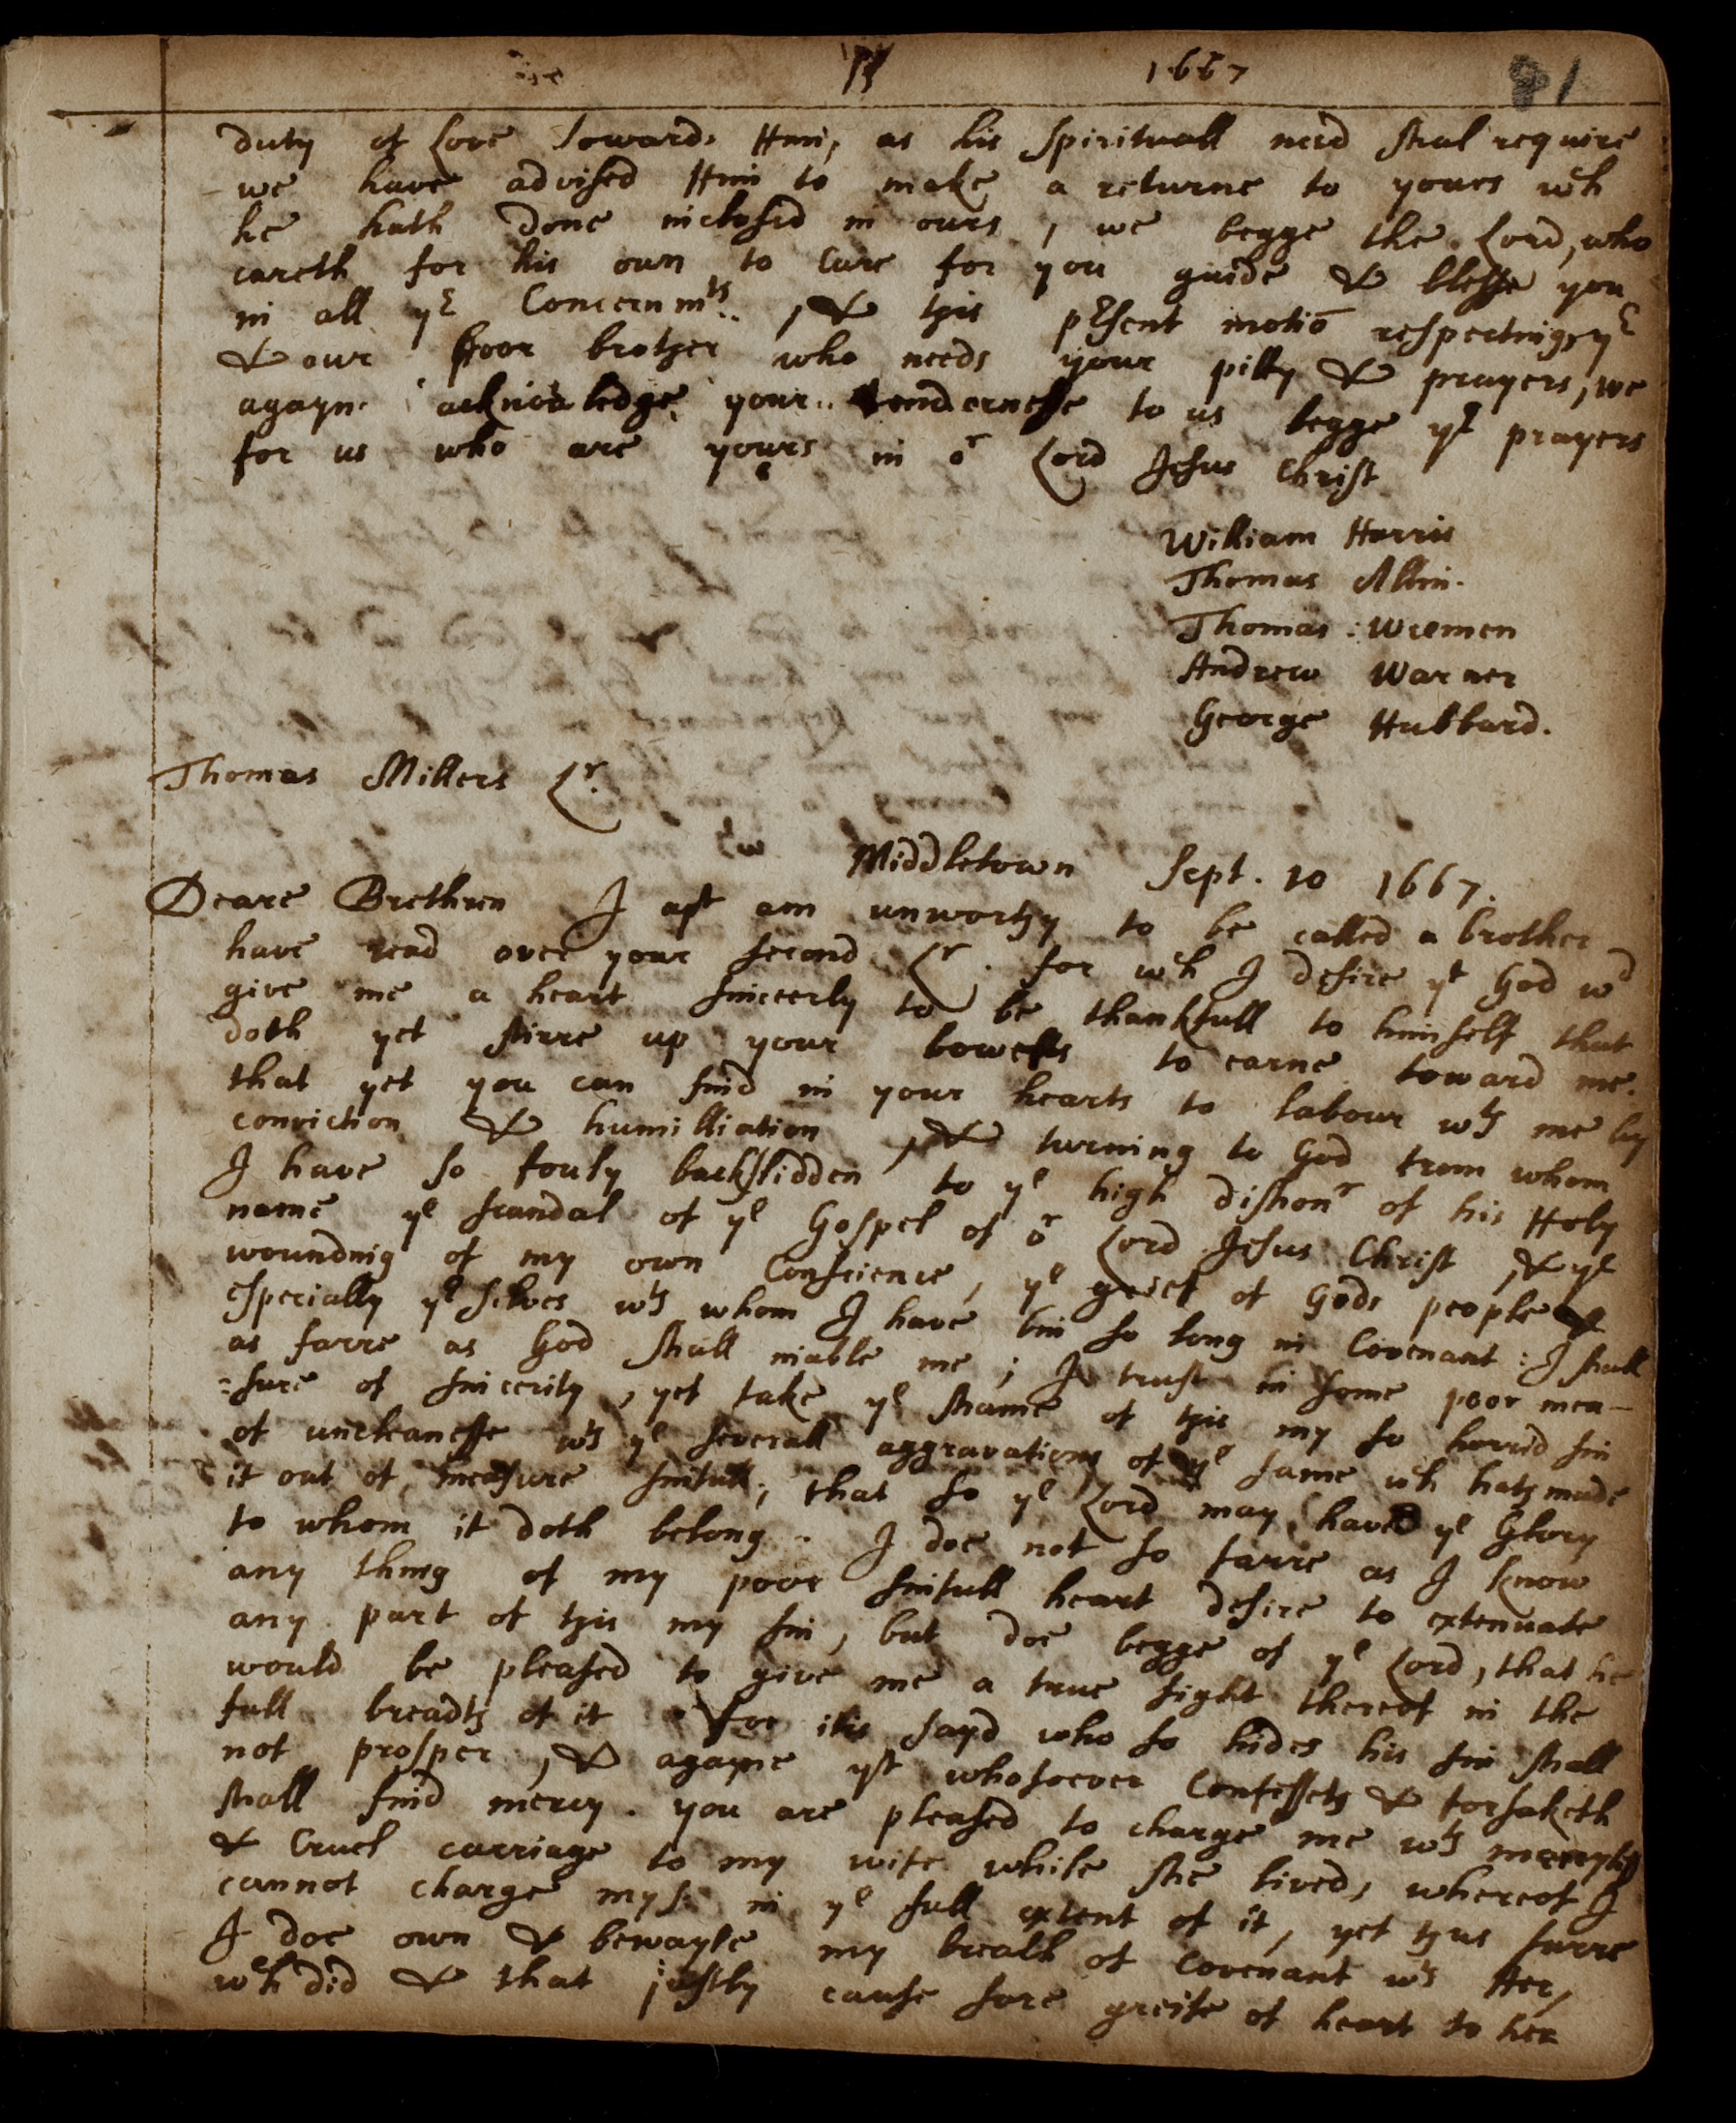 1667 81
duty of Love toward Him, as his spirituall need shal require
we have advised Him to make a returne to yours wch
he hath done inclosed in ours, we begge the Lord, who
careth for his own to Care for you guide & blesse you
in all yr Concernmts, & this prsent motiō respecting yr
& our poor brother who needs your pitty & prayers, we
agayn acknowledge your tendernesse to us begge yr prayers
for us who are yours in or Lord Jesus Christ
William Harris
Thomas Allin.
Thomas: Wremen
Andrew Warner
George Hubbard.
Thomas Millers Lr.
Middletown Sept. 10 1667.
Deare Brethren I yt am unworthy to be called a brother
have read over your second Lr. for wch I desire yt God wd
give me a heart sincerly to be thankfull to himself that
doth yet stirre up your bowells to earne toward me.
that yet you can find in your hearts to labour wth me by
conviction & humilliation, & turning to God from whom
I have so fouly backslidden to ye high dishonr of his Holy
name ye scandal of ye Gospel of or Lord Jesus Christ, & ye
wounding of my own Conscience, ye greif of Gods people &
especially yr selves wth whom I have bin so long in Covenant: I shall
as farre as God shall inable me; I trust in some poor mea-
:sure of sincerity, yet take ye shame of this my so horrid sin
of uncleanesse wth ye severall aggravations of ye same wch hath made
it out of measure sinfull; that so ye Lord may have ye Glory
to whom it doth belong. I doe not so farre as I know
any thing of my poor sinfull heart desire to extenuate
any part of this my sin, but doe begge of ye Lord, that he
would be pleased to give me a true sight thereof in the
full breadth of it. For itis sayd who so hides his sin shall
not prosper, & againe yt whosoever Confesseth & forsaketh
shall find mercy. you are pleased to charge me wth
& Cruel carriage to my wife while she lived, whereof I
cannot charge mys: in ye full extent of it, yet thus farre
I doe own & bewayle my breach of Covenant wth Her,
wch did & that justly cause sore greife of heart to her